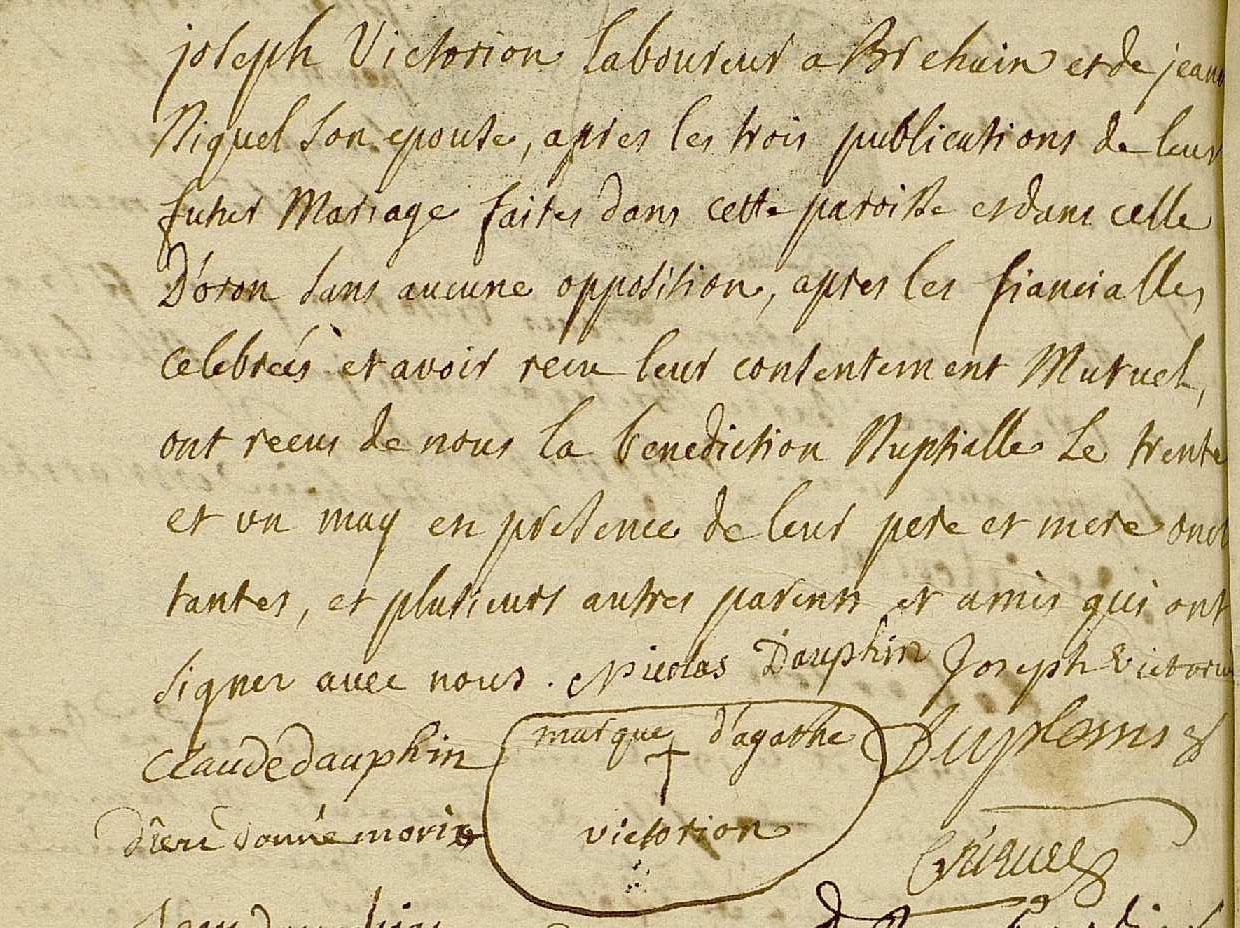 joseph Victorion Laboureur a Brehain et de jeann
Niquel son epouse, apres les trois publications de leur
futur Mariage faites dans cette paroisse et dans celle
D'oron sans aucune opposition, apres les fiancialles
celebrées et avoir recu leur consentement Mutuel,
ont recus de nous la benediction Nuptialle Le trente
et un may en presence de leur pere et mere oncl
tantes, et plusieurs autres parens et amis qui ont
signer avec nous. Nicolas Dauphin Joseph Victorion
Claude dauphin marque d'agathe Duplessis
dieu donné morin victorion